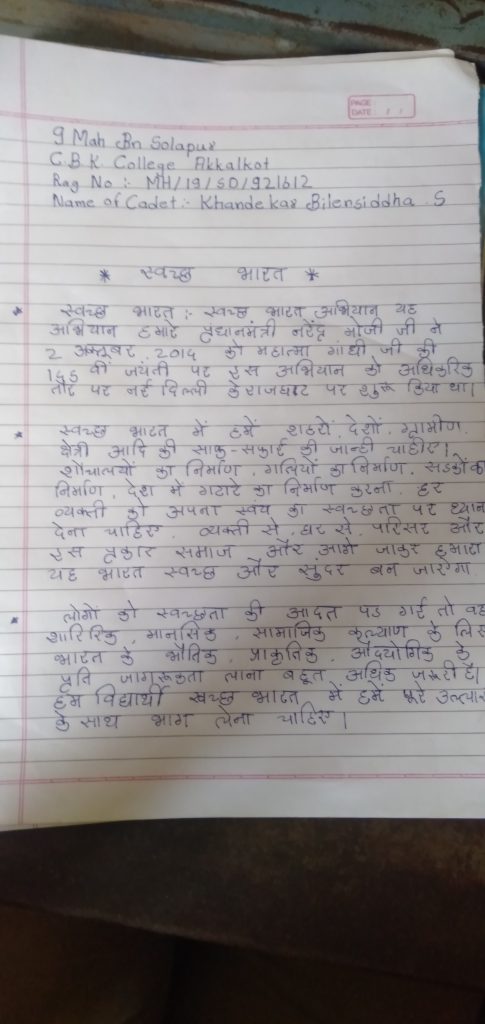 PAGE :
DATE : / /
9 Mah Bn Solapur
C.B.K. College Akkalkot
Rag No :- MH/19/SD/921612
Name of Cadet :- Khandekar Bilensiddha . S
* स्वच्छ भारत *
* स्वच्छ भारत :- स्वच्छ भारत अभियान यह
अभियान हमारे प्रधानमंत्री नरेंद्र मोजी जी ने
2 अक्टूबर 2014 को महात्मा गांधी जी की
145 वीं जयंती पर इस अभियान को अधिकरिक
तौर पर नई दिल्ली के राजघाट पर शुरू किया था।
* स्वच्छ भारत में हमें शहरों, देशों, ग्रामीण,
क्षेत्री आदि की साफ-सफाई की जानी चाहीए।
शौचालयों का निर्माण, गलियों का निर्माण, सडकोंका
निर्माण, देश में गटारे का निर्माण करना, हर
व्यक्ती को अपना स्वयं का स्वच्छता पर ध्यान
देना चाहिए. व्यक्ती से, घर से, परिसर और
इस प्रकार समाज और आगे जाकर हमारा
यह भारत स्वच्छ और सुंदर बन जाएगा.
* लोगों को स्वच्छता की आदत पड गई तो वह
शारिरिक, मानसिक, सामाजिक कल्याण के लिए
भारत के भौतिक, प्राकृतिक, औदयोगिक के
प्रति जागरूकता लाना बहूत अधिक जरूरी है।
हम विद्यार्थी स्वच्छ भारत में हमें पूरे उत्साह
के साथ भाग लेना चाहिए।